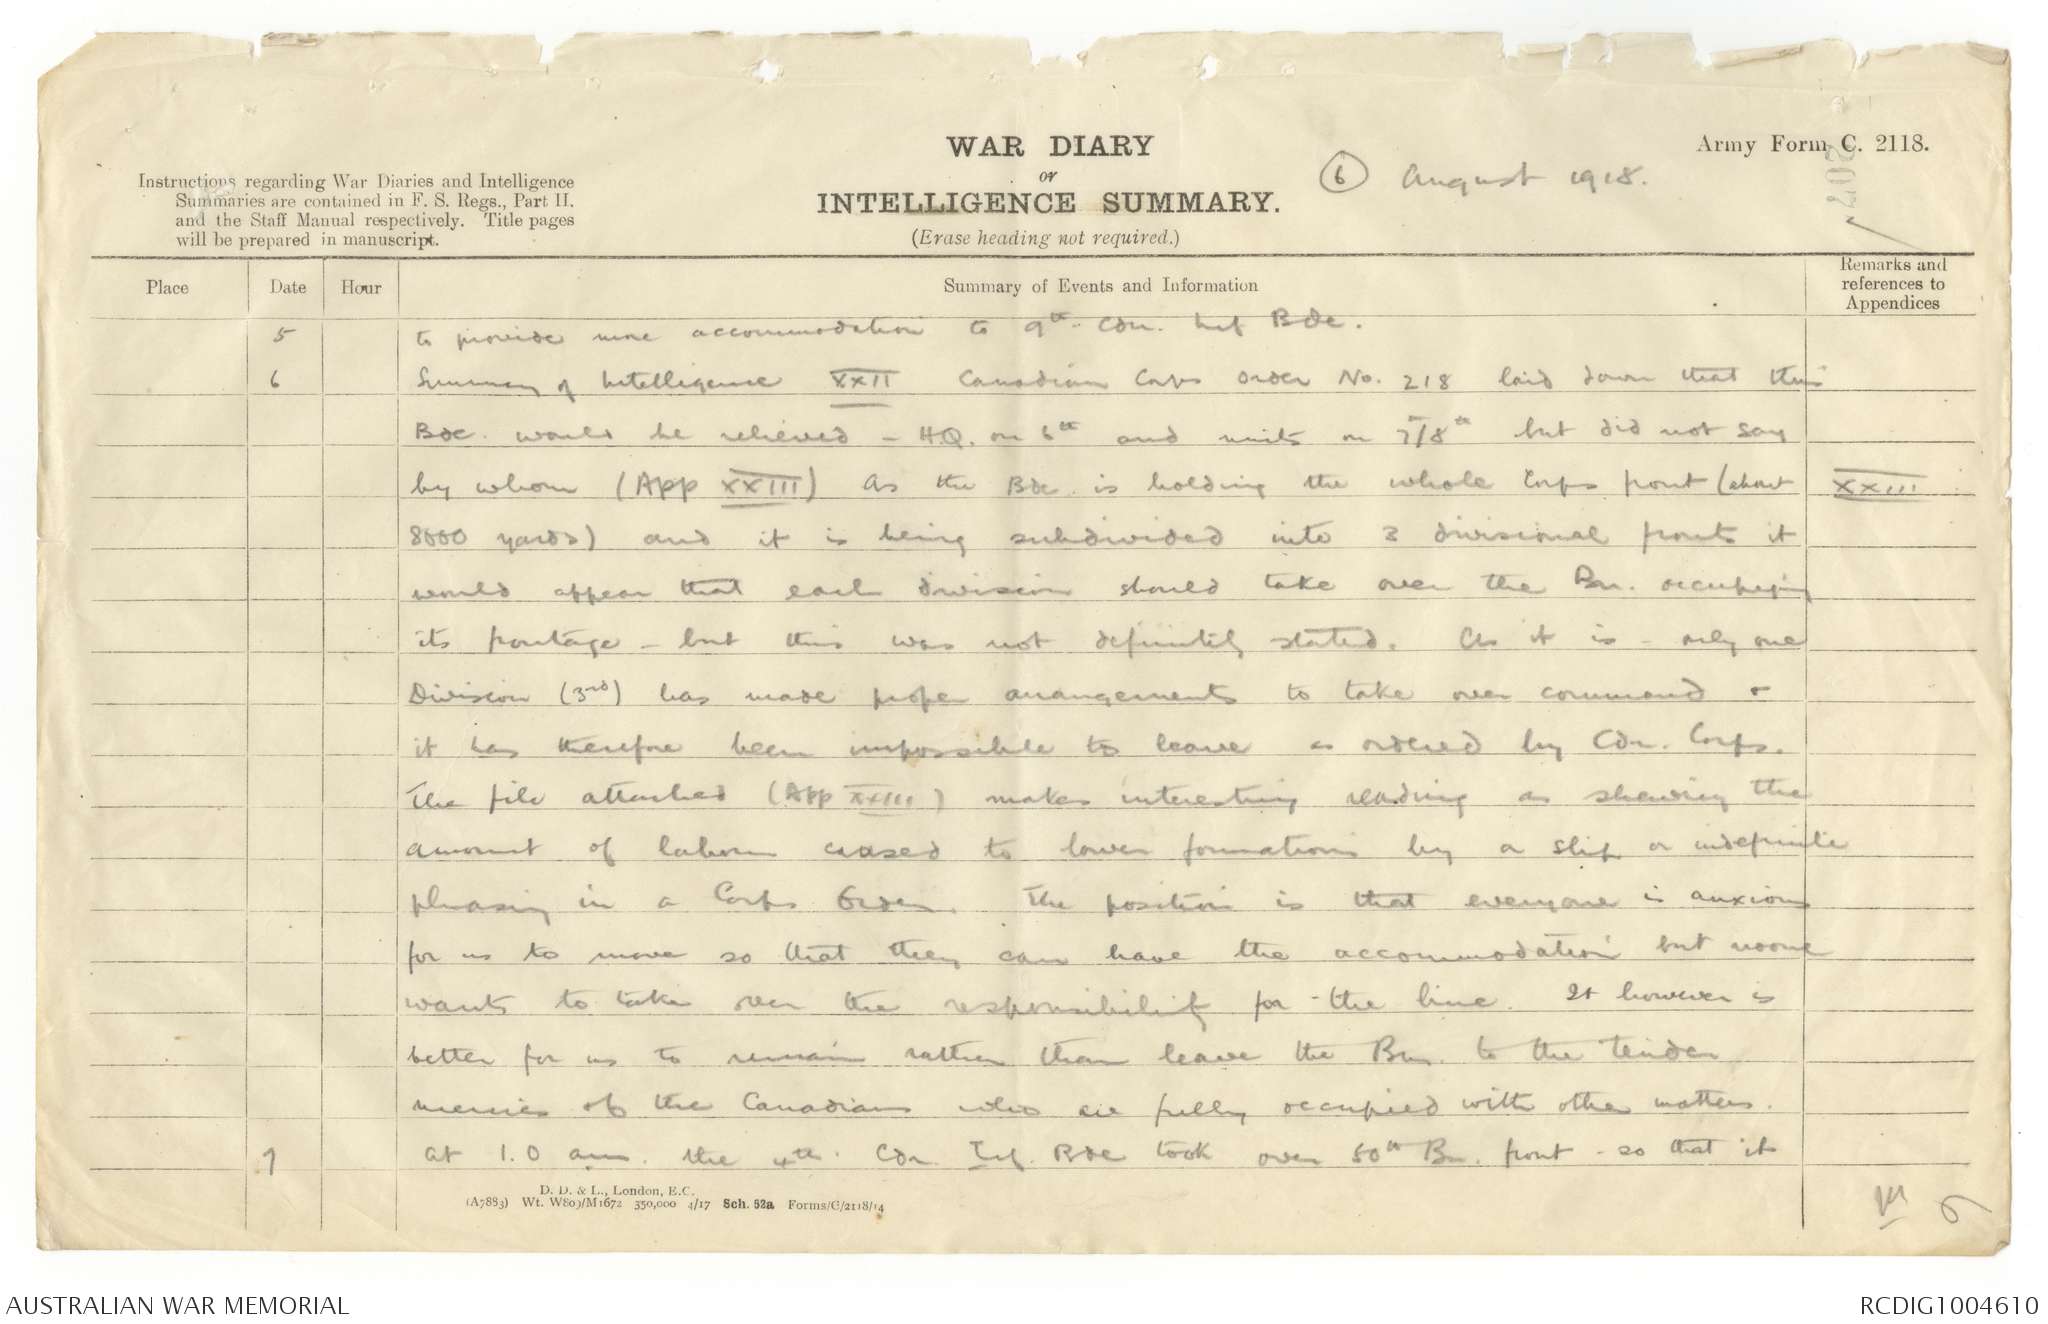 WAR DIARY
or
INTELLIGENCE SUMMARY.
(Erase heading not required.)
Army Form C. 2118.
Instructions regarding War Diaries and Intelligence
Summaries are contained in F. S. Regs., Part II.
and the Staff Manual respectively. Title pages
will be prepared in manuscript.
6 August 1918.
207
Place Date Hour Summary of Events and Information Remarks and references to Appendices
5 to provide more accommodation to 9th. Cdn. Inf Bde.
6 Summary of Intelligence XXII Canadian Corps Order No. 218 laid down that this
Bde. would be relieved - H.Q. on 6th and units on 7/8th but did not say
by whom (App XXIII) As the Bde. is holding the whole Corps front (about XXIII
8000 yards) and it is being subdivided into 3 divisional fronts it
would appear that each division should take over the Bn. occupying
its frontage - but this was not definitely stated. As it is - only one
Division (3rd) has made proper arrangements to take over command &
it has therefore been impossible to leave as ordered by Cdn. Corps.
The file attached (App XXIII) makes interesting reading as shewing the
amount of labour caused to lower formations by a slip or indefinite
phrasing in a Corps Order. The position is that everyone is anxious
for us to move so that they can have the accommodation but noone
wants to take over the responsibility for the line. It however is
better for us to remain rather than leave the Bns. to the tender
mercies of the Canadians who are fully occupied with other matters.
7 At 1.0 am. the 4th. Cdn. Inf. Bde took over 50th Bn. front - so that it
D. D. & L., London, E.C.
(A7883) Wt. W809/M1672 350,000 4/17 Sch. 52a Forms/C/2118/14
AUSTRALIAN WAR MEMORIAL
RCDIG1004610